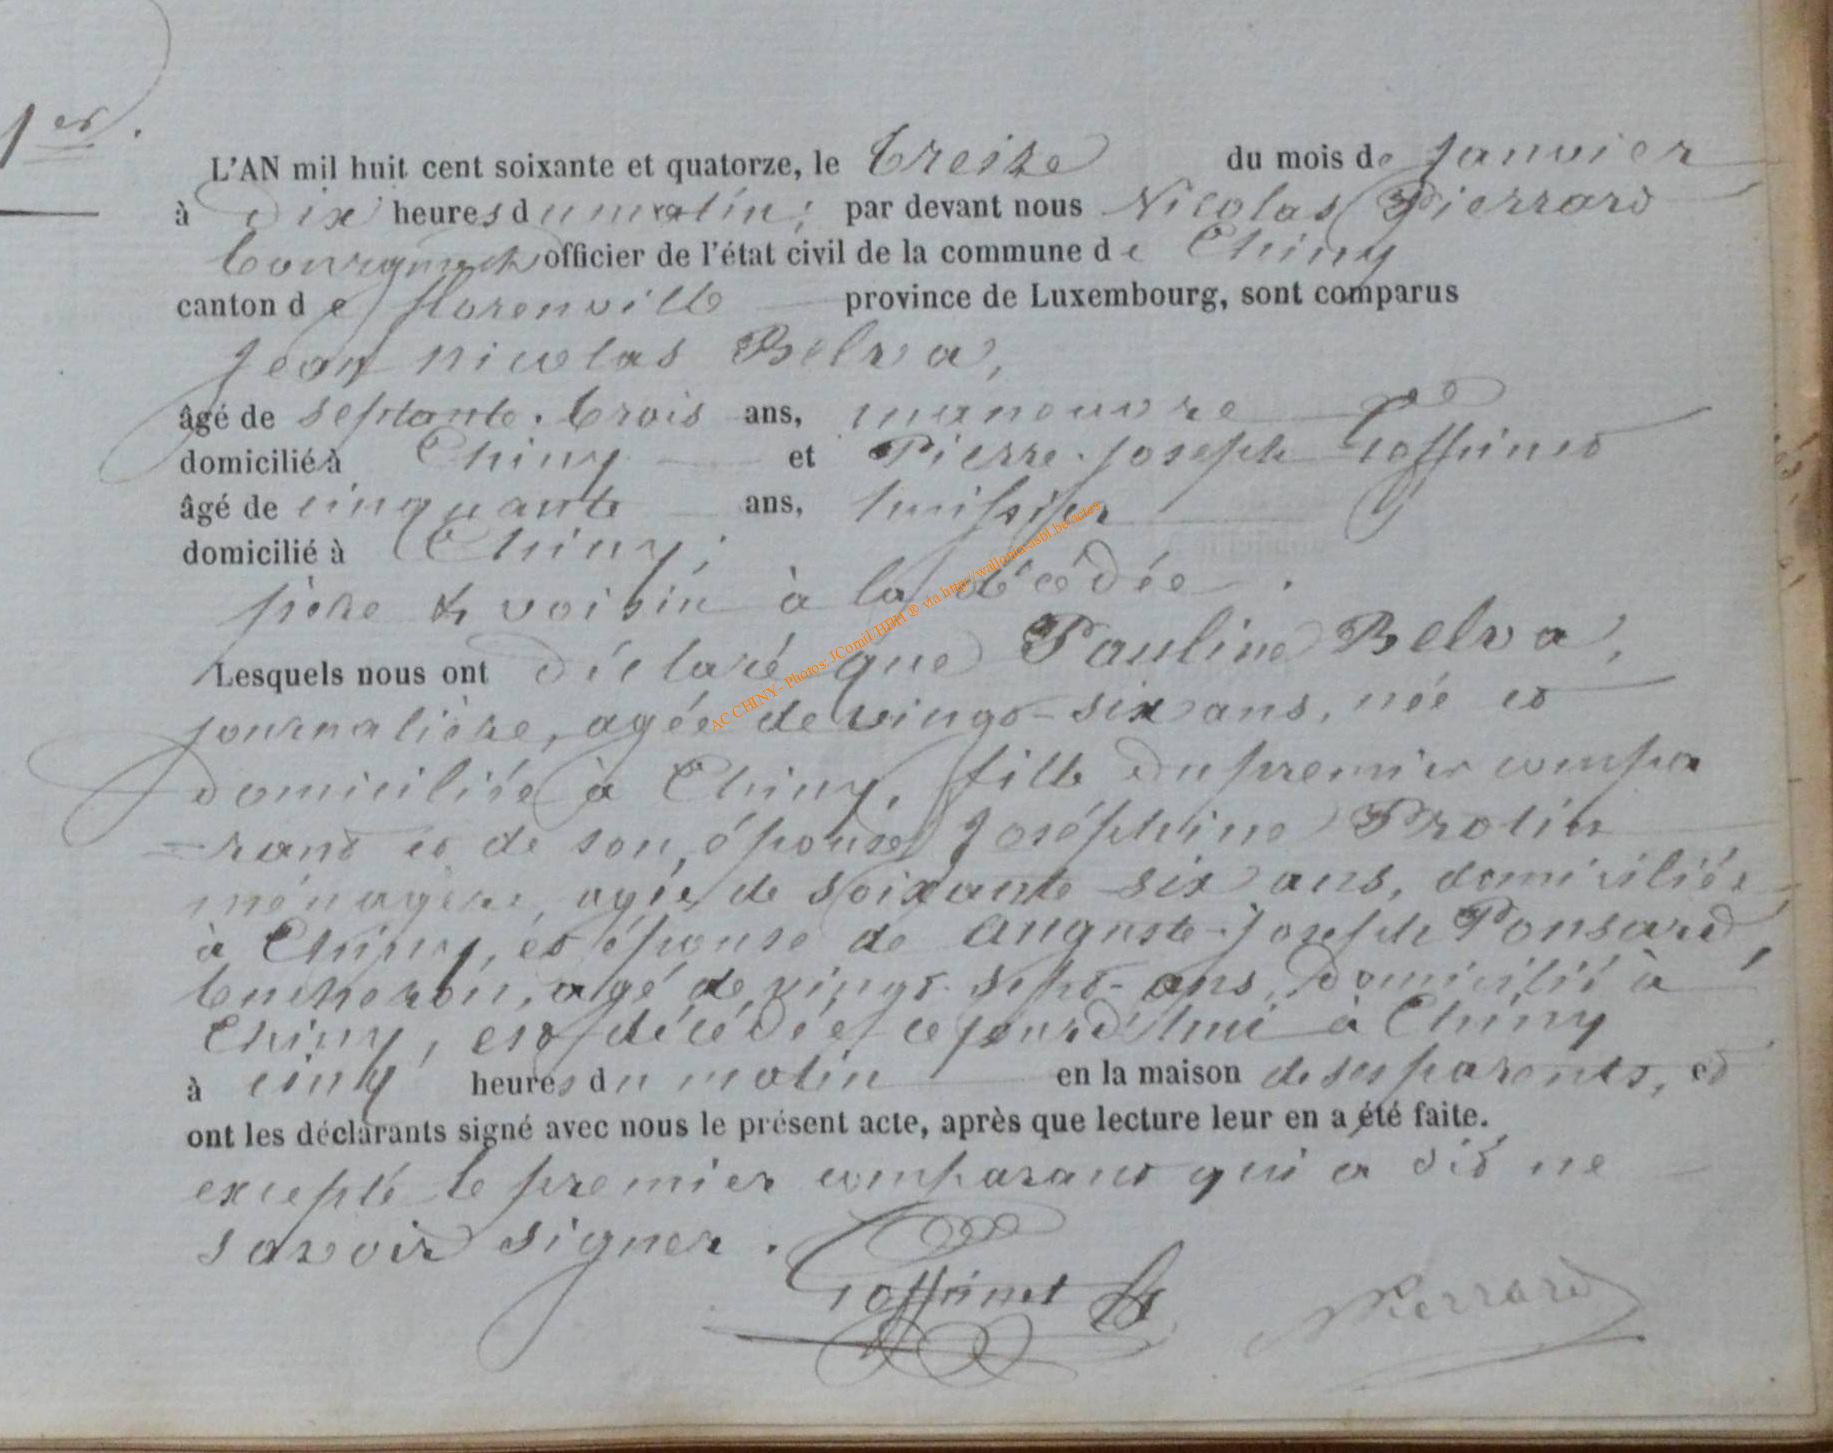 1er.
L'AN mil huit cent soixante et quatorze, le treize du mois de Janvier
à dix heures du matin; par devant nous Nicolas Pierrard
bourgmestre officier de l'état civil de la commune de Chiny
canton de florenville province de Luxembourg, sont comparus
Jean nicolas Belva,
âgé de septante-trois ans, manouvre
domicilié à Chiny et Pierre-Joseph Goffinet
âgé de cinquante ans, huissier
domicilié à Chiny;
père & voisin à la décédée.
Lesquels nous ont déclaré que Pauline Belva,
journalière, agée de vingt-six ans, née et
domiciliée à Chiny, fille du premier compa
-rant et de son épouse Joséphine Protin
ménagère, agée de soixante six ans, domiciliée
à Chiny, et épouse de Auguste-Joseph Ponsard,
bucheron, agé de vingt-sept-ans, domicilié à
Chiny, est décédée ce jourd'hui à Chiny
à cinq heures du matin en la maison de ses parents, et
ont les déclarants signé avec nous le présent acte, après que lecture leur en a été faite.,
excepté le premier comparant qui a dit ne
savoir signer.
Goffinet
NPierrard
AC CHINY - Photos JComil HBH ® via http://wallonia-asbl.be/actes